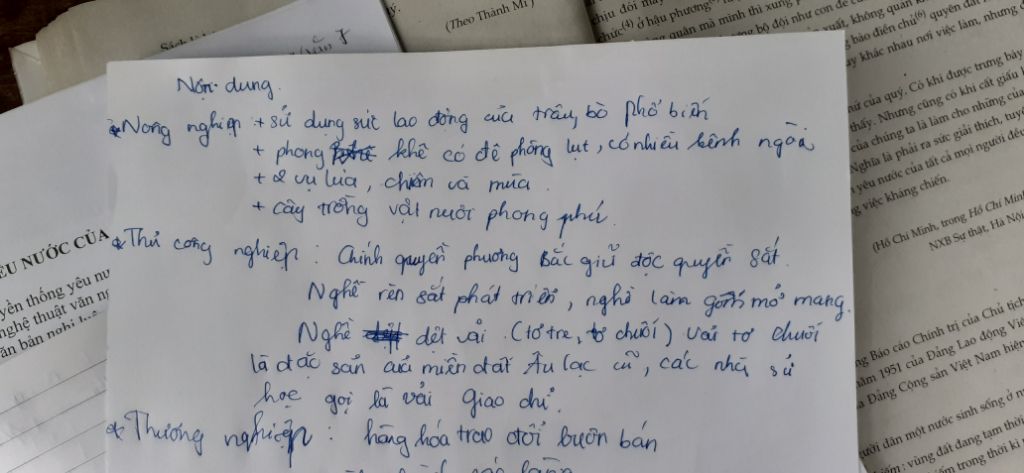 (Theo Thành Mĩ)
Nội dung.
* Nông nghiệp + sử dụng sức lao động của trâu, bò phổ biến
+ phong khê có đê phòng lụt, có nhiều kênh ngòi
+ 2 vụ lúa, chiêm và mùa.
+ cây trồng vật nuôi phong phú.
* Thủ công nghiệp : Chính quyền phương Bắc giữ độc quyền sắt.
Nghề rèn sắt phát triển, nghề làm gốm mở mang.
Nghề dệt vải (tơ tre, tơ chuối) vải tơ chuối
là đặc sản của miền đất Âu lạc cũ, các nhà sử
học gọi là vải Giao chỉ.
* Thương nghiệp : hàng hóa trao đổi buôn bán
ÊU NƯỚC CỦA
yền thống yêu nư
nghệ thuật văn ng
chịu đói
(4) ở hậu phương
quân mà mình thì xung p
bộ đội như con đẻ c
xuất, không quản k
điền chủ(6) quyên đất
ay khác nhau nơi việc làm, nhưng
ứ của quý. Có khi được trưng bày
thấy. Nhưng cũng có khi cất giấu k
của chúng ta là làm cho những của
Nghĩa là phải ra sức giải thích, tuyê
yêu nước của tất cả mọi người đều
g việc kháng chiến.
(Hồ Chí Minh, trong Hồ Chí Minh
NXB Sự thật, Hà Nội
ng Báo cáo Chính trị của Chủ tịch
năm 1951 của Đảng Lao động Việt
à Đảng Cộng sản Việt Nam hiện
ười dân một nước sinh sống ở n
vùng đất đang tạm thời
trong thời kì